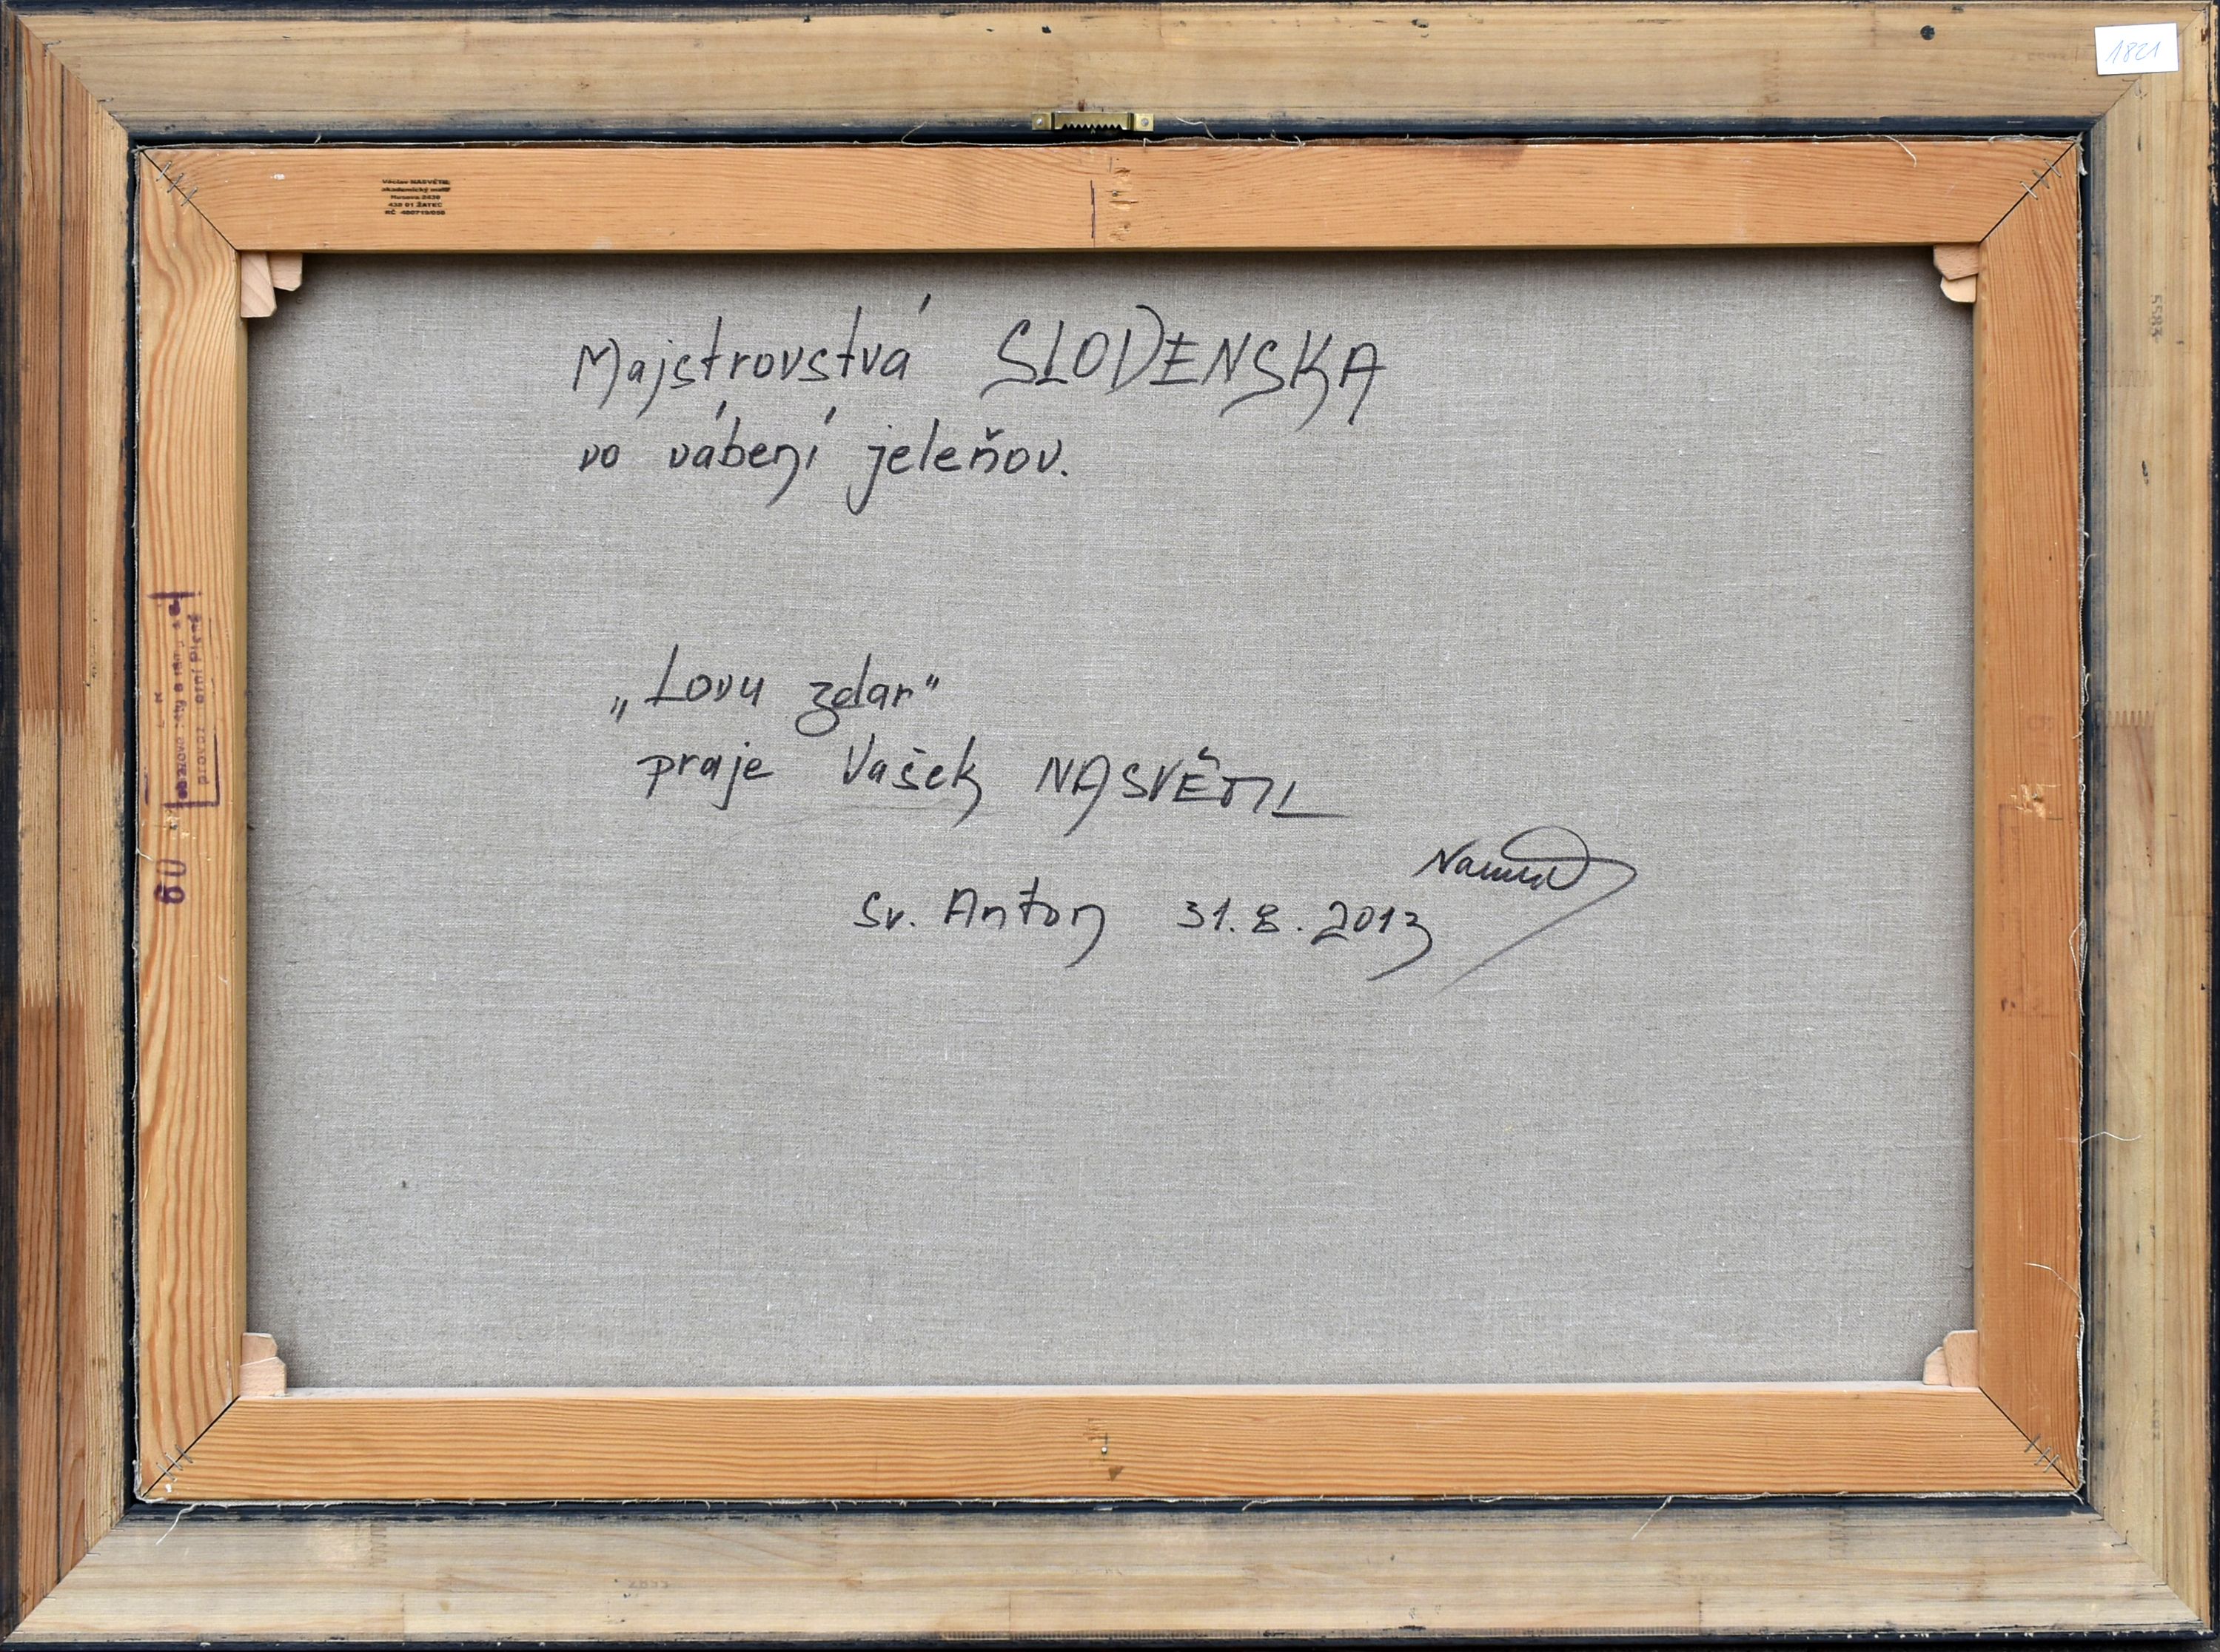 1821
Václav NASVĚTIL
akademický malíř
Husova
438 01 ŽATEC
Majstrovstvá SLOVENSKA
vo vábení jeleňov.
„Lovu zdar"
praje Vašek NASVĚTIL
Sv. Anton 31.8.2013
60
5583